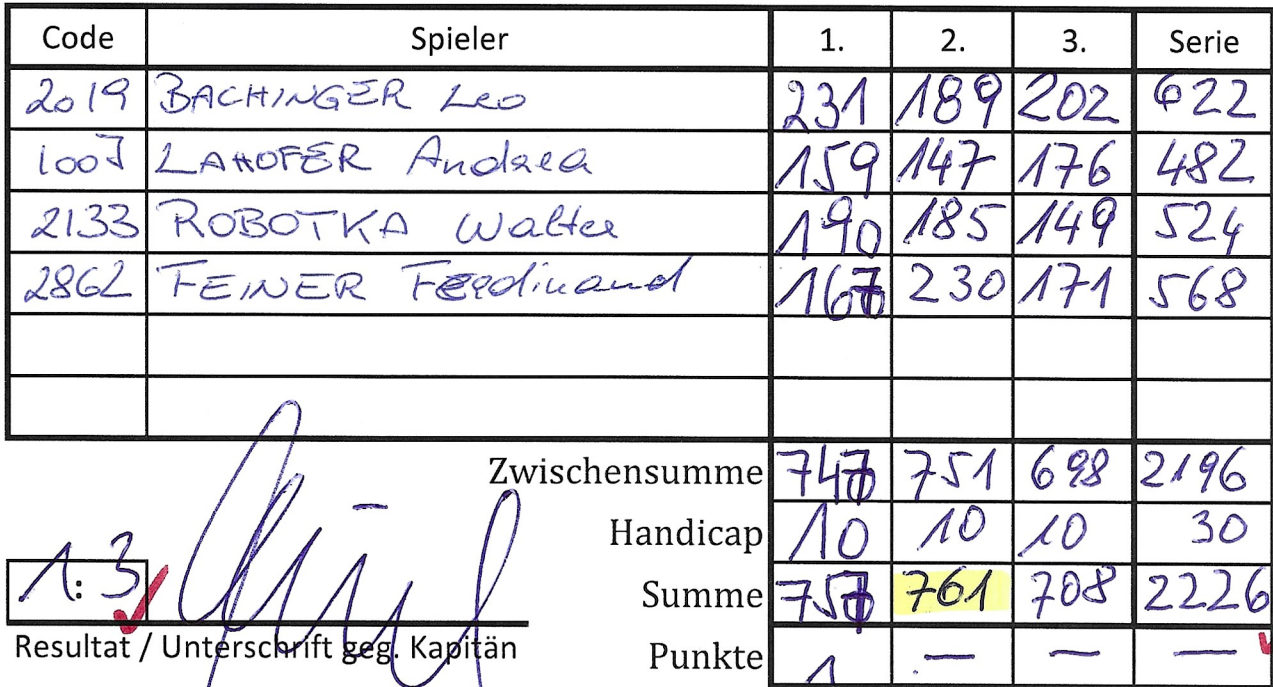 Code Spieler 1. 2. 3. Serie
2019 BACHINGER Leo 231 189 202 622
1007 LAHOFER Andrea 159 147 176 482
2133 ROBOTKA Walter 190 185 149 524
2862 FEINER Ferdinand 167 230 171 568
Zwischensumme 747 751 698 2196
Handicap 10 10 10 30
1:3 Summe 757 761 708 2226
Resultat / Unterschrift geg. Kapitän Punkte 1 — — —